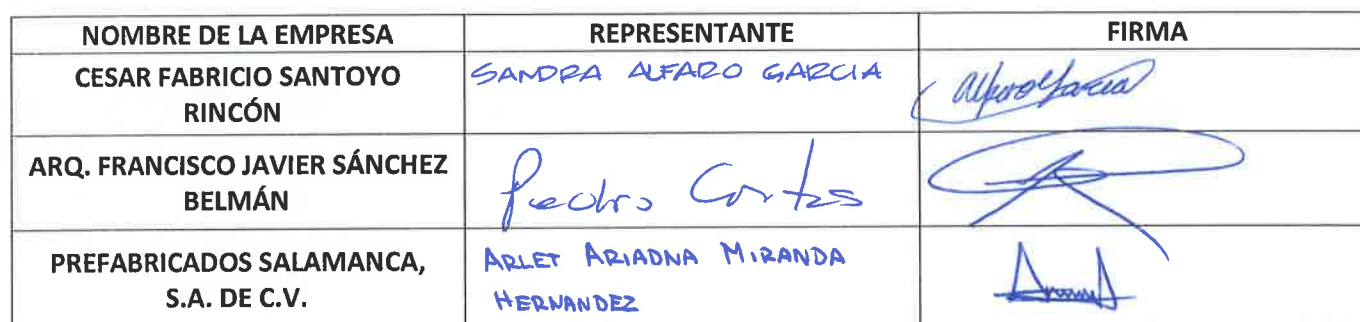 NOMBRE DE LA EMPRESA REPRESENTANTE FIRMA
CESAR FABRICIO SANTOYO
RINCÓN
SANDRA ALFARO GARCIA
Alfaro Garcia
ARQ. FRANCISCO JAVIER SÁNCHEZ
BELMÁN
Pedro Cortes
PREFABRICADOS SALAMANCA,
S.A. DE C.V.
ARLET ARIADNA MIRANDA
HERNANDEZ